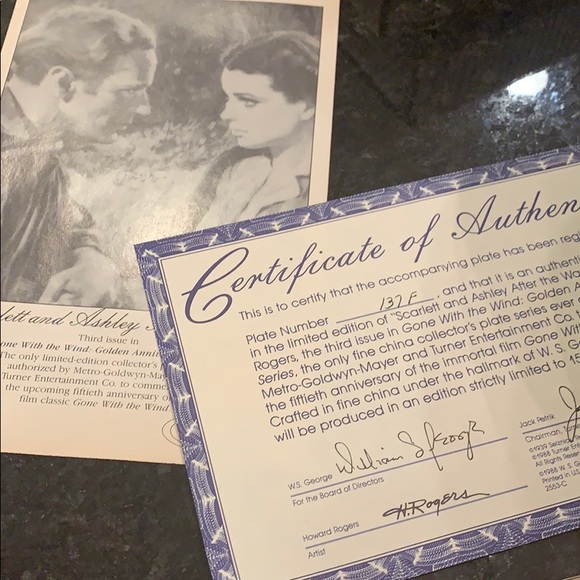 lett and Ashley
Third issue in
one With the Wind: Golden Anni
The only limited-edition collector's
authorized by Metro-Goldwyn-M
Turner Entertainment Co. to comm
the upcoming fiftieth anniversary o
film classic Gone With the Wind
Certificate of Authen
This is to certify that the accompanying plate has been regi
Plate Number 137F, and that it is an authenti
in the limited edition of "Scarlett and Ashley After the Wa
Rogers, the third issue in Gone With the Wind: Golden A
Series, the only fine china collector's plate series ever
Metro-Goldwyn-Mayer and Turner Entertainment Co. t
the fiftieth anniversary of the immortal film Gone Wit
Crafted in fine china under the hallmark of W. S. G
will be produced in an edition strictly limited to 1
W.S. George
For the Board of Directors
H. Rogers
Howard Rogers
Artist
Jack Petrik
Chairman, Tu
©1939 Selznic
©1988 Turner Ente
All Rights Reserve
©1988 W. S. G
Printed in U.S.
2553-C